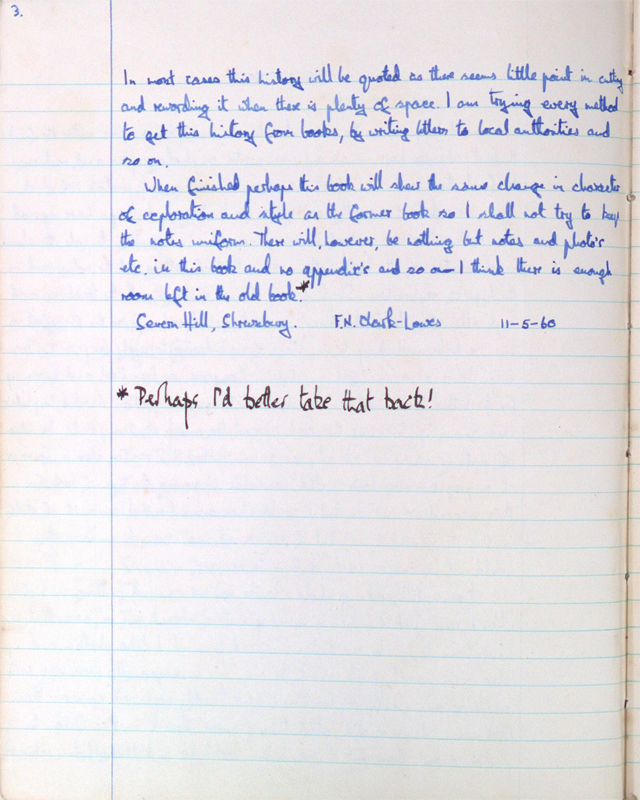 3.
In most cases this history will be quoted as there seems little point in cutting
and rewording it when there is plenty of space. I am trying every method
to get this history from books, by writing letters to local authorities and
so on.
When finished perhaps this book will show the same change in character
of exploration and style as the former book so I shall not try to keep
the notes uniform. There will, however, be nothing but notes and photo's
etc. in this book and no appendix's and so on— I think there is enough
room left in the old book.*
Severn Hill, Shrewsbury. F.N. Clark-Lowes 11-5-60
* Perhaps I'd better take that back!